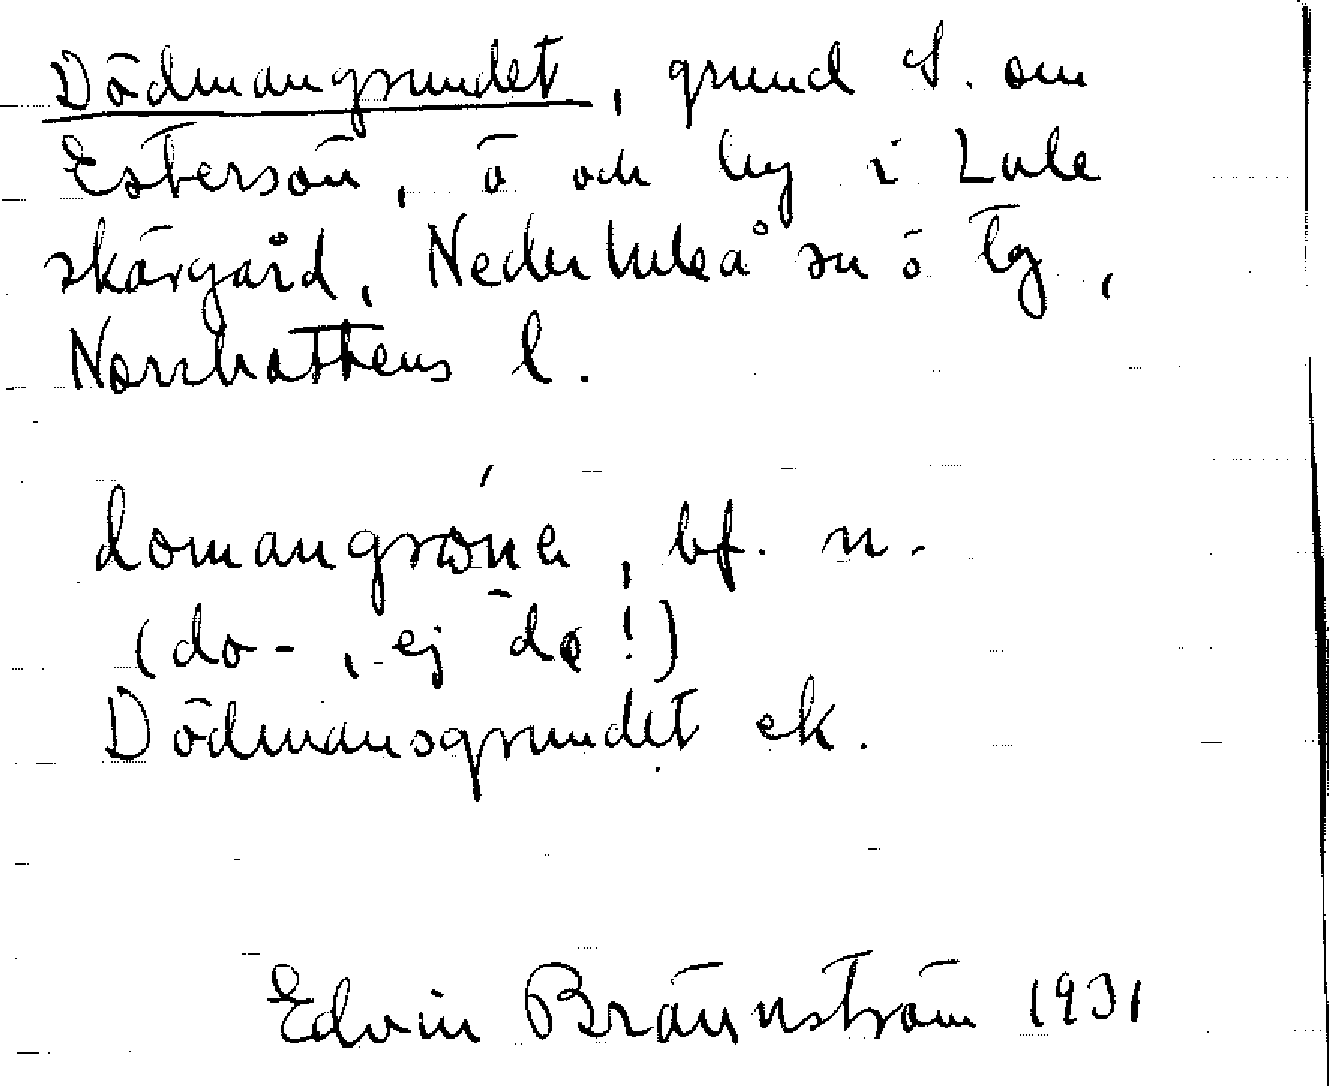 Dödmangrundet, grund S. om
Estersön, ö och by i Lule
skärgård, Nederluleå sn ö tg,
Norrbottens l.
domangrωne, bf. n.
(do-, ej dø!)
Dödmansgrundet ek.
Edvin Brännström 1931